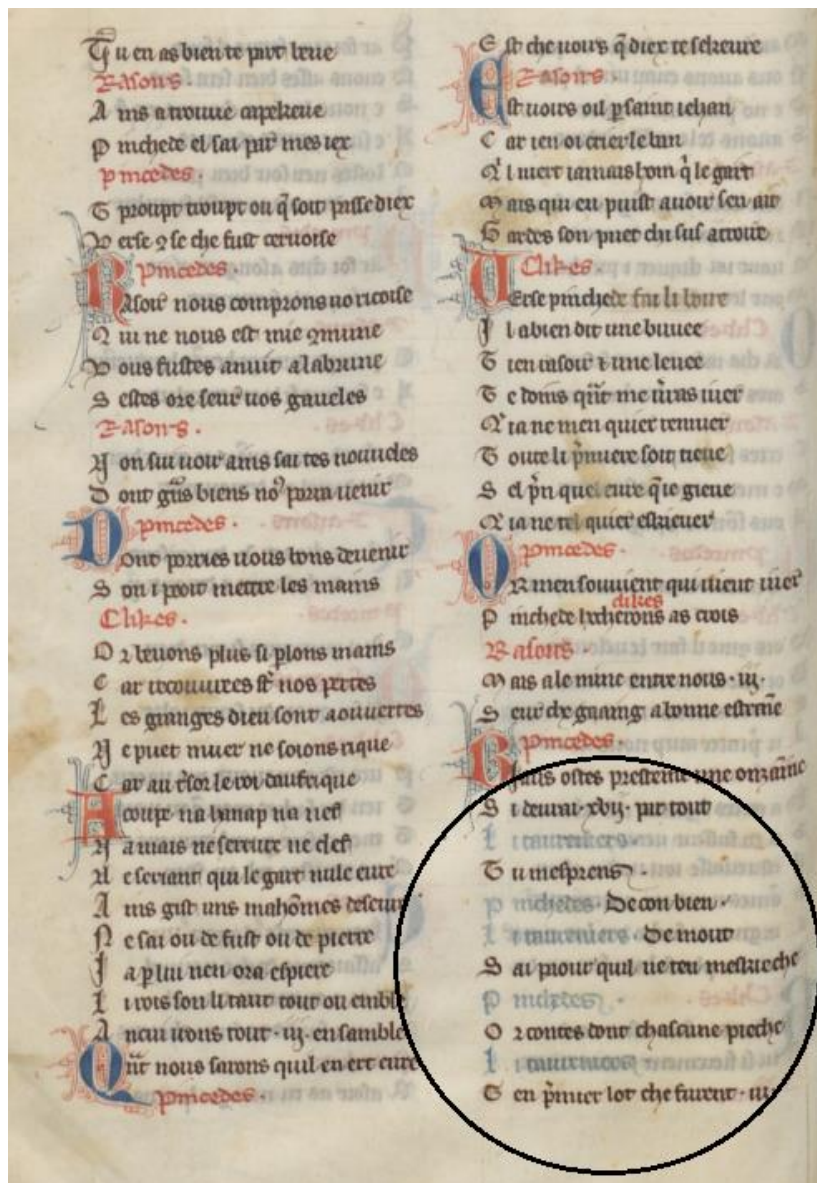 Tu en as bien te part beue
Rasoirs.
Ains a trouue caperkeue
Pinchede el fai par mes iex
Pincedes.
Troupt troupt ou q̄ soit passe diex
Verse ꝯ se che fust ceruoise
Pincedes.
Rasoir nous comprons no ricoise
Qui ne nous est mie ꝯmune
Vous fustes anuit a la brune
Sestes ore seur uos gaucles
Rasoirs.
Non sui uoir ains sai tes nouueles
Dont gn̄s biens noꝰ porra uenir
Pincedes.
Dont porries uous bons deuenir
Son i puoit mettre les mains
Clikes.
Or beuons plus si plons mains
Car recouurees st̄ nos pertes
Les granges dieu sont aouuertes
Ne puet muer ne soions rique
Car au tͥsor le roi daufrique
A coupe na hanap na nef
Na mais ne serrure ne clef
Ne seriant qui le gart nule eure
Ains gist uns mahōmes deseur
Ne sai ou de fust ou de pierre
Ja ꝑ lui nen ora espiere
Li rois son li taut tout ou emble
Anciu irons tout .iij. ensamble
Qn̄t nous sarons quil en ert eure
Pincedes.
Est che uoirs q̄ diex te sekeure
Rasoirs.
Est uoirs oil ꝑ saint iehan
Car ien oi crier le ban
Qͥl niert iamais hom qͥ le gart
Mais qui en puist auoir sen ait
Gardes son puet chi sus acroire
Clikes.
Verse pinchede fai li boire
Il a bien dit une buuee
Tien rasoir i une leuee
Te doins qn̄t me uͥras iuer
Qͥ ia ne men quier remuer
Toute li pͥmiere soit tieue
Sel pn̄ quel eure qͥe griene
Qͥ ia ne tel quier estriuer
Pincedes.
Or men souuient qui uient iuer
clikes
Pinchede hocherons as crois
Rasoirs.
Mais a le mine entre nous .iij.
Seur che gaaing a bonne estrine
Pincedes.
Biaus ostes prestéme une onzaine
Si deurai .xvij. par tout
li taureniers.
Tu mesprens
pinchedes. De con bien.
li tauerniers. De mout
Sai piour quil ne teu meskieche
pinchedes.
Or contes dont chascune pieche
li tauerniers
Ten pͥmier lot che furent .iij.